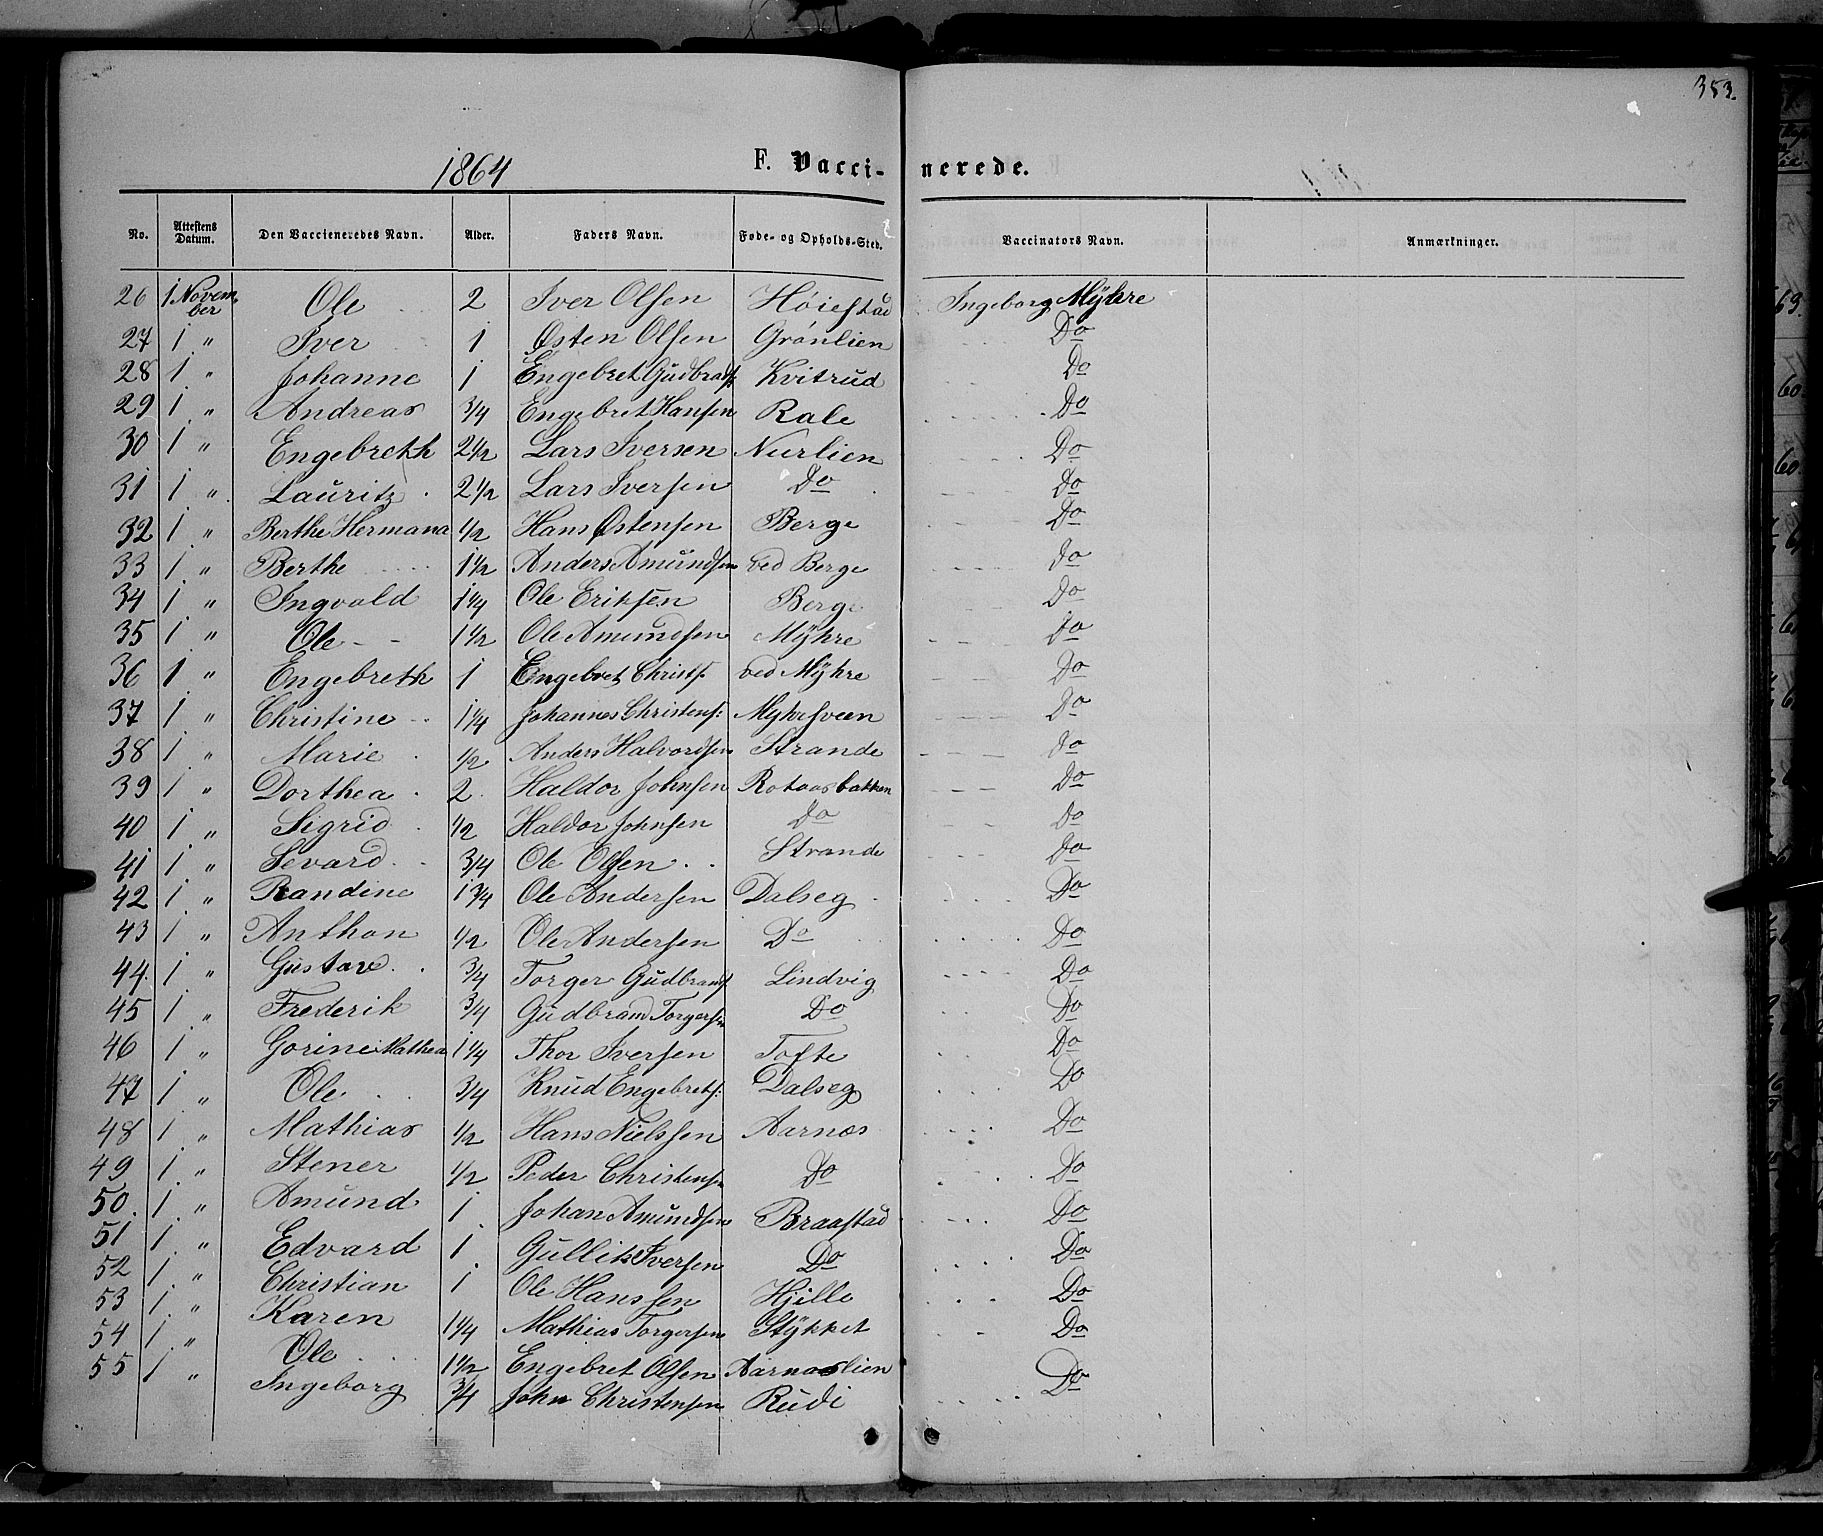 353.
1864 F. Vaccinerede.
No. Attestens Datum. Den Vaccieneredes Navn. Alder. Faders Navn. Føde- og Opholds-Sted. Vaccinators Navn. Anmærkninger.
26 1 November Ole 2 Iver Olsen Høiestad Ingeborg Mÿhre
27 1 " Iver 1 Østen Olsen Grønlien Do
28 1 " Johanne 1 Engebret Gudbrads: Kvitrud Do
29 1 " Andreas 3/4 Engebret Hansen Rale Do
30 1 " Engebreth 2 1/2 Lars Iversen Nurlien Do
31 1 " Lauritz 2 1/2 Lars Iversen Do Do
32 1 " Berthe Hermana 1/2 Hans Østensen Berge Do
33 1 " Berthe 1 1/2 Anders Amundsen ved Berge Do
34 1 " Ingvald 1 1/4 Ole Eriksen Berge Do
35 1 " Ole 1 1/2 Ole Amundsen Mÿhre Do
36 1 " Engebreth 1 Engebret Christs: ved Mÿhre Do
37 1 " Christine 1 1/4 Johannes Christens: Myhrsveen Do
38 1 " Marie 1/2 Anders Halvordsen Strande Do
39 1 " Dorthea 2 Haldor Johnsen Rotaasbakken Do
40 1 " Sigrid 1/2 Haldor Johnsen Do Do
41 1 " Sevard 3/4 Ole Olsen Strande Do
42 1 " Randine 1 3/4 Ole Andersen Dalseg Do
43 1 " Anthon 1/2 Ole Andersen Do Do
44 1 " Gustave 3/4 Torger Gudbrands Lindvig Do
45 1 " Frederik 3/4 Gudbrand Torgersen Do Do
46 1 " Gorine Mathea 1 1/4 Thor Iversen Tofte Do
47 1 " Ole 3/4 Knud Engebrets: Dalseg Do
48 1 " Mathias 1/2 Hans Nielssen Aarnæs Do
49 1 " Stener 1/2 Peder Christensen Do Do
50 1 " Amund 1 Johan Amundsen Braastad Do
51 1 " Edvard 1 Gullik Iversen Do Do
52 1 " Christian 1 Ole Hanssen Hjelle Do
53 1 " Karen 1 1/4 Mathias Torgersen Stÿkket Do
54 1 " Ole 1 1/2 Engebret Olsen Aarnæslien Do
55 1 " Ingeborg 3/4 John Christensen Rudi